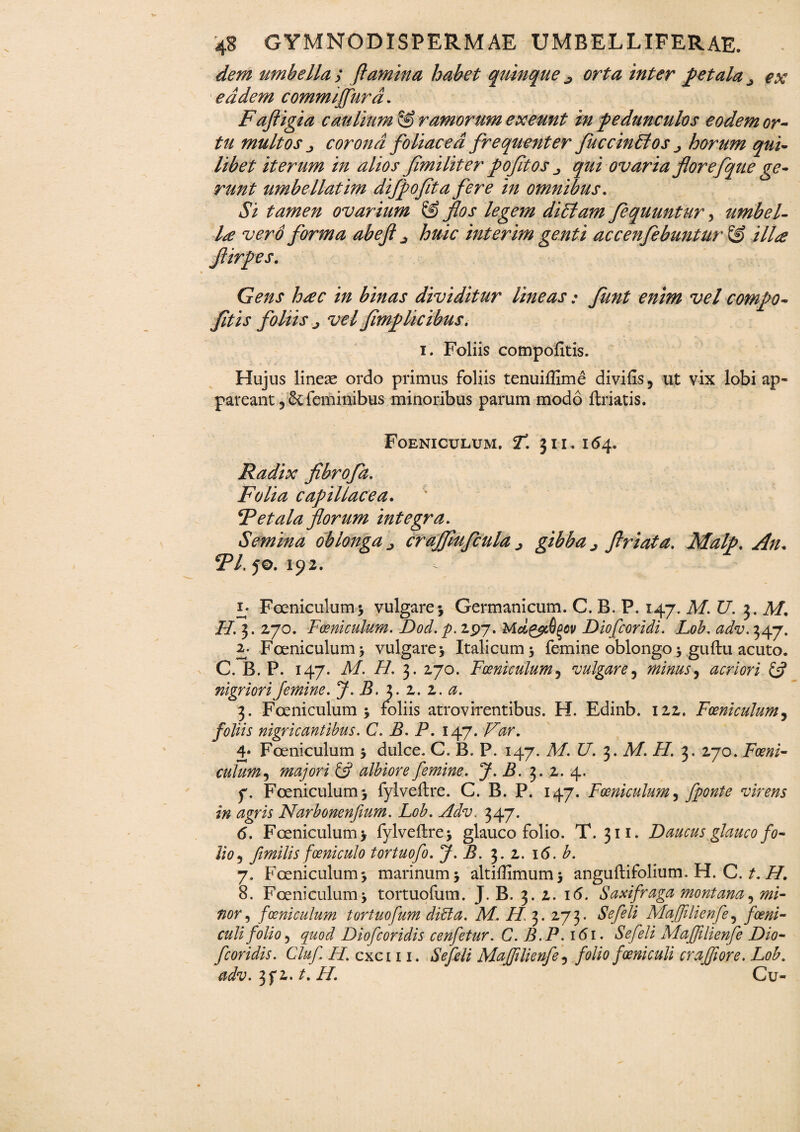 48 GYMNODISPERMAE UMBELLIFERAE.
dem umbella; ſtamina habet quinque, orta inter petala, ex
eâdem commiſſurâ.
Faſtigia caulium & ramorum exeunt in pedunculos eodem or-
tu multos, coronâ foliaceâ frequenter ſuccinctos, horum qui-
libet iterum in alios ſimiliter poſitos, qui ovaria floreſque ge-
runt umbellatim diſpoſita fere in omnibus.
Si tamen ovarium & flos legem dictam ſequuntur, umbel-
læ verò forma abeſt, huic interim genti accenſebuntur & illæ
ſtirpes.
Gens hæc in binas dividitur lineas: ſunt enim vel compo-
ſitis foliis, vel ſimplicibus.
1. Foliis compoſitis.
Hujus lineæ ordo primus foliis tenuiſſimè diviſis, ut vix lobi ap-
pareant, & ſeminibus minoribus parum modò ſtriatis.
FOENICULUM. T. 311. 164.
Radix fibroſa.
Folia capillacea.
Petala florum integra.
Semina oblonga, craſſiuſcula, gibba, ſtriata. Malp. An.
Pl. 50. 192.
1. Foeniculum; vulgare; Germanicum. C. B. P. 147. M. U. 3. M.
H. 3. 270. Fœniculum. Dod. p. 297. Μάραθρον Dioſcoridi. Lob. adv. 347.
2. Foeniculum; vulgare; Italicum; ſemine oblongo; guſtu acuto.
C. B. P. 147. M. H. 3. 270. Fœniculum, vulgare, minus, acriori &
nigriori ſemine. J. B. 3. 2. 2. a.
3. Foeniculum; foliis atrovirentibus. H. Edinb. 122. Fœniculum,
foliis nigricantibus. C. B. P. 147. Var.
4. Foeniculum; dulce. C. B. P. 147. M. U. 3. M. H. 3. 270. Fœni-
culum, majori & albiore ſemine. J. B. 3. 2. 4.
5. Foeniculum; ſylveſtre. C. B. P. 147. Fœniculum, ſponte virens
in agris Narbonenſium. Lob. Adv. 347.
6. Foeniculum; ſylveſtre; glauco folio. T. 311. Daucus glauco fo-
lio, ſimilis fœniculo tortuoſo. J. B. 3. 2. 16. b.
7. Foeniculum; marinum; altiſſimum; anguſtifolium. H. C. t. H.
8. Foeniculum; tortuoſum. J. B. 3. 2. 16. Saxifraga montana, mi-
nor, fœniculum tortuoſum dicta. M. H. 3. 273. Seſeli Maſſilienſe, fœni-
culi folio, quod Dioſcoridis cenſetur. C. B. P. 161. Seſeli Maſſilienſe Dio-
ſcoridis. Cluſ. H. CXCIII. Seſeli Maſſilienſe, folio fœniculi craſſiore. Lob.
adv. 352. t. H.
Cu-